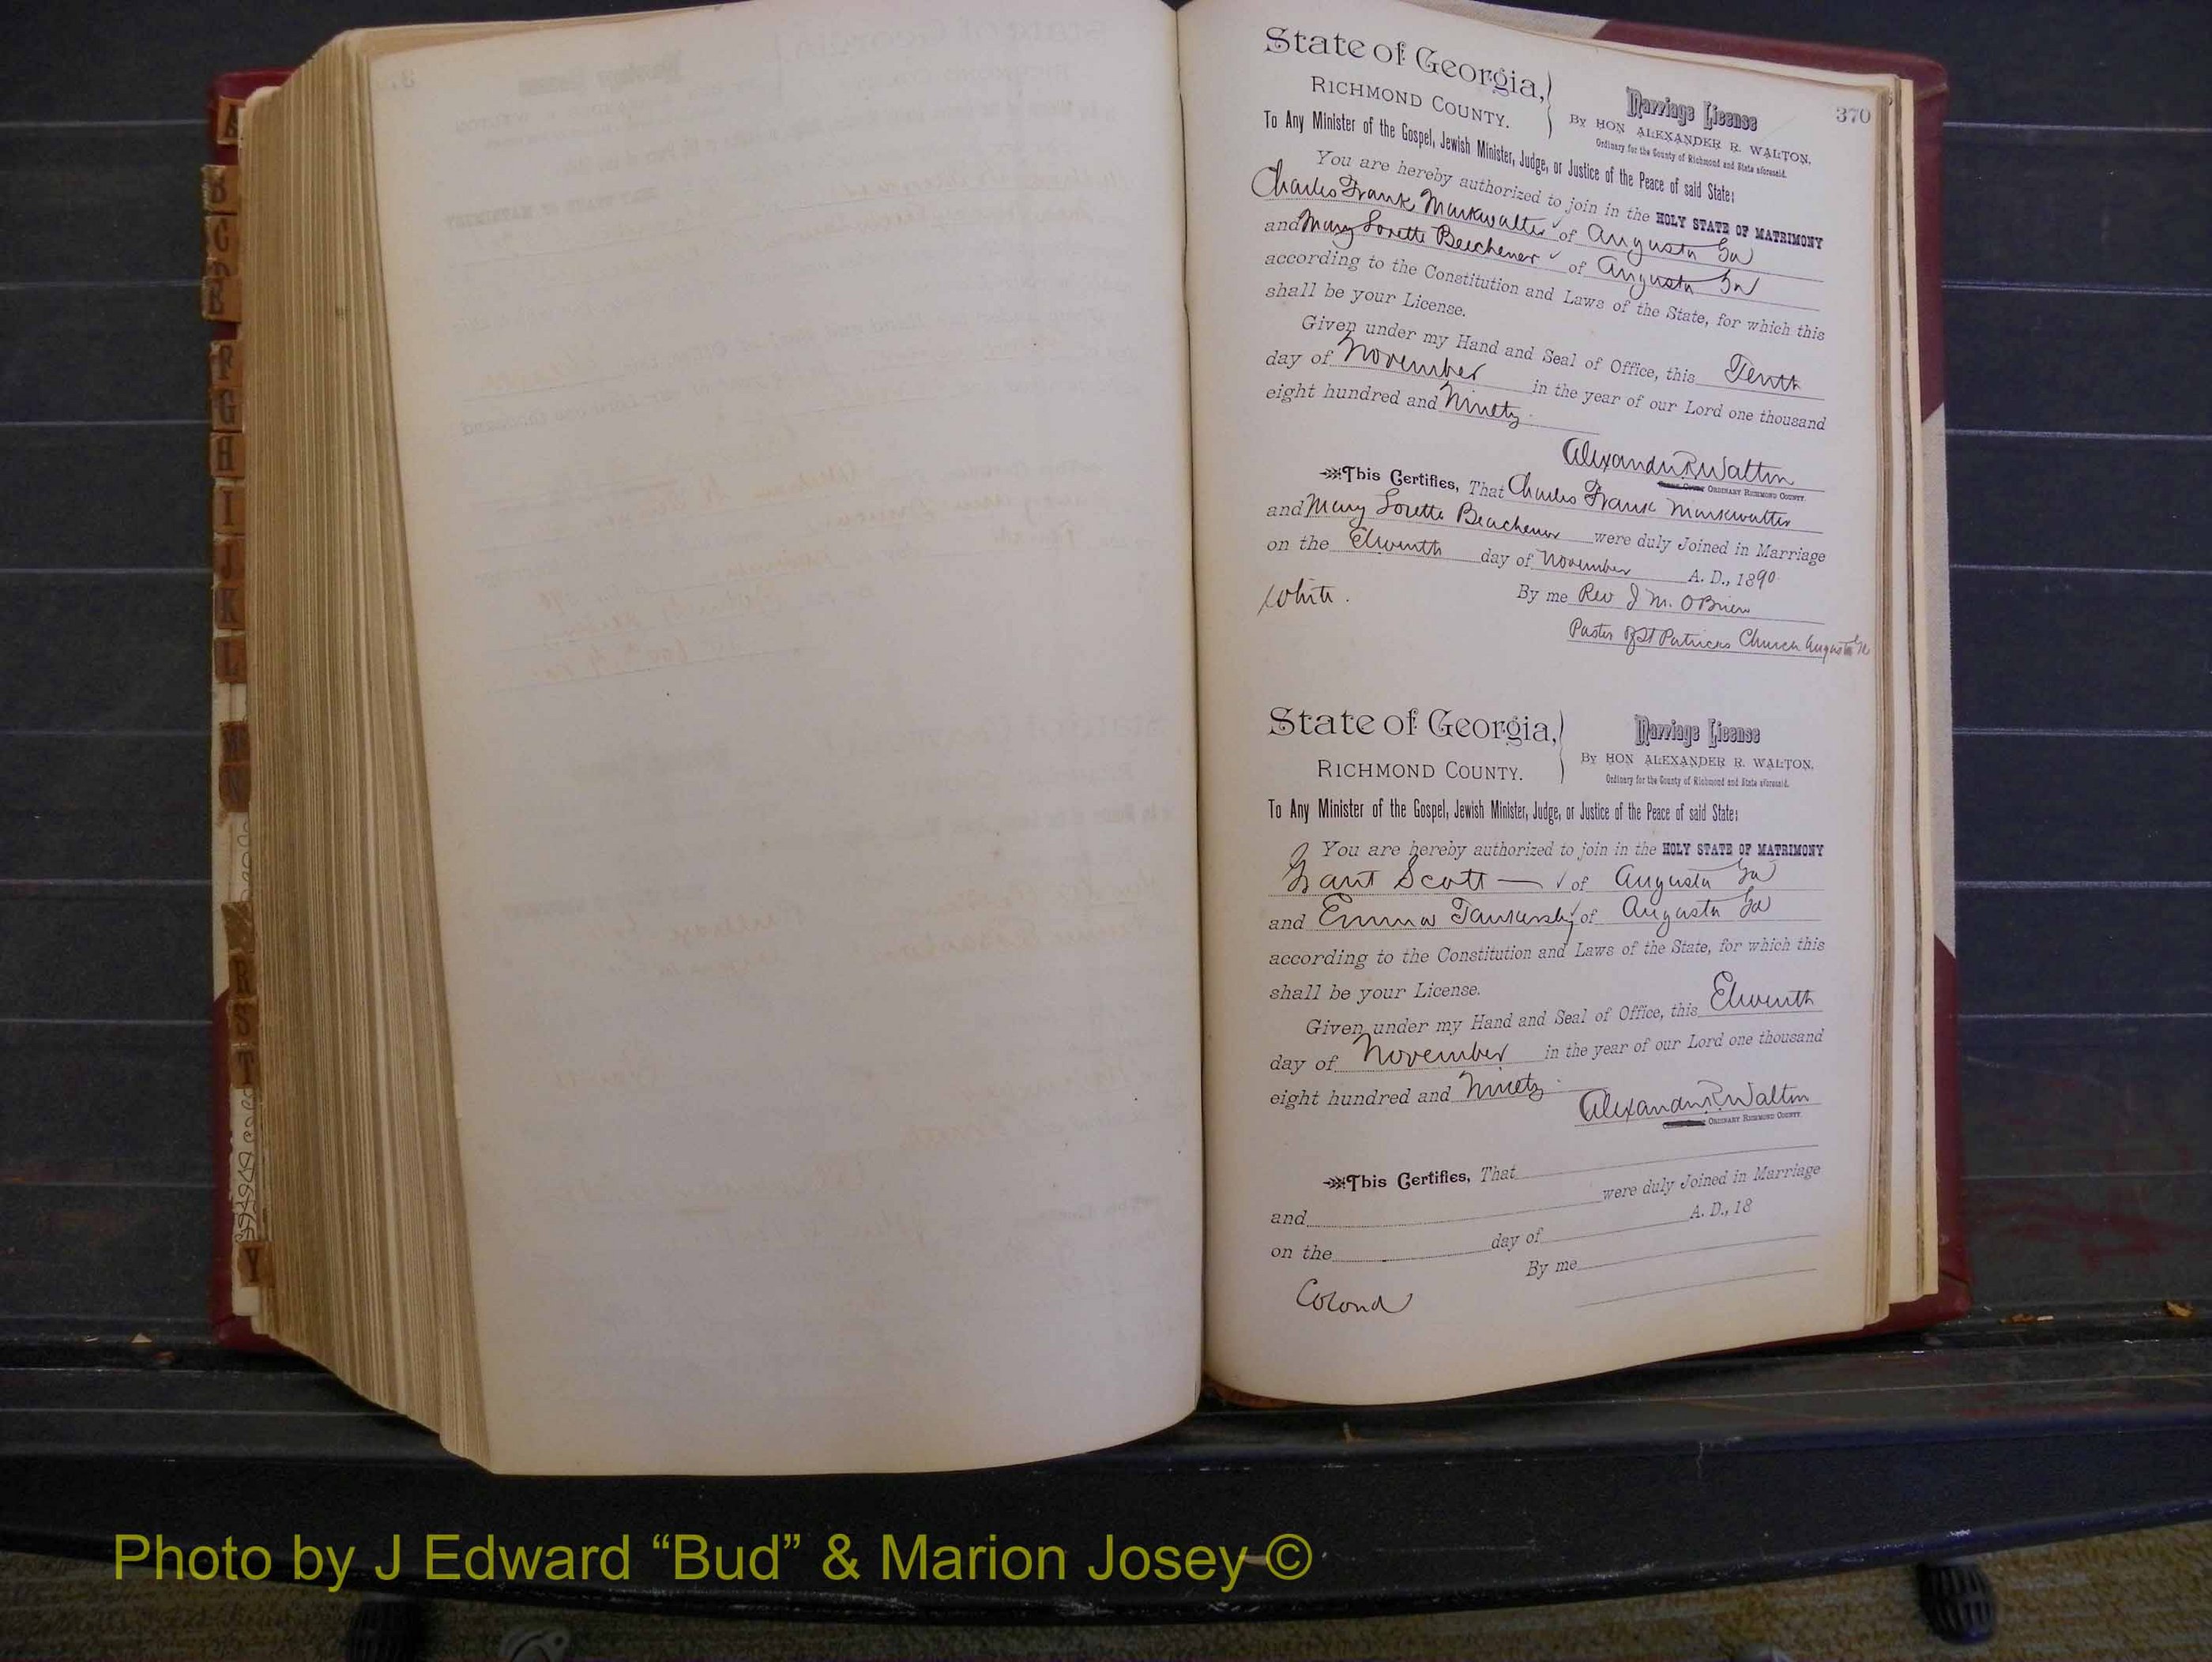 A
B
C
D
E
F
G
H
I
J
K
L
M
N
R
S
T
Y
370
State of Georgia,
RICHMOND COUNTY.
Marriage License
BY HON ALEXANDER R. WALTON,
Ordinary for the County of Richmond and State aforesaid.
To Any Minister of the Gospel, Jewish Minister, Judge, or Justice of the Peace of said State:
You are hereby authorized to join in the HOLY STATE OF MATRIMONY
Charles Frank Markwalter of Augusta Ga
and Mary Lorette Beechener of Augusta Ga
according to the Constitution and Laws of the State, for which this
shall be your License.
Given under my Hand and Seal of Office, this Tenth
day of November in the year of our Lord one thousand
eight hundred and Ninety.
Alexander R Walton
ORDINARY RICHMOND COUNTY.
This Certifies, That Charles Frank Markwalter
and Mary Lorette Beachener were duly Joined in Marriage
on the Eleventh day of November A. D., 1890.
White. By me Rev J M. OBrien
Pastor of St Patricks Church Augusta Ga
State of Georgia,
RICHMOND COUNTY.
Marriage License
By HON ALEXANDER R. WALTON,
Ordinary for the County of Richmond and State aforesaid.
To Any Minister of the Gospel, Jewish Minister, Judge, or Justice of the Peace of said State:
You are hereby authorized to join in the HOLY STATE OF MATRIMONY
Grant Scott of Augusta Ga
and Emma Tankersly of Augusta Ga
according to the Constitution and Laws of the State, for which this
shall be your License.
Given under my Hand and Seal of Office, this Eleventh
day of November in the year of our Lord one thousand
eight hundred and Ninety.
Alexander R Walton
ORDINARY RICHMOND COUNTY.
This Certifies, That
and were duly Joined in Marriage
on the day of A. D., 18
By me
Colored
Photo by J Edward “Bud” & Marion Josey ©